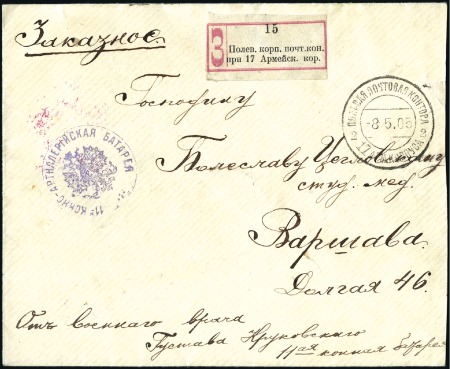 Заказное.
З
15
Полев. корп. почт. кон.
при 17 Армейск. кор.
Господину
ПОЛЕВАЯ ПОЧТОВАЯ КОНТОРА
-8.5.05
17 КОРПУСА
11Я КОННО-АРТИЛЛЕРІЙСКАЯ БАТАРЕЯ
Болеславу
студ. мед.
Варшава.
Долгая 46.
Отъ военнаго врача
Густава Круковскаго
11ая конная батарея